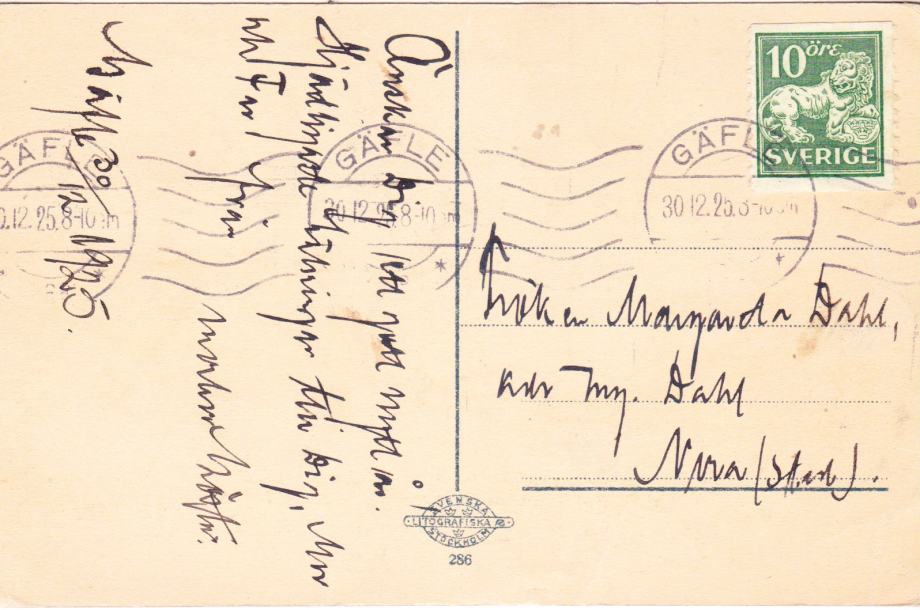 Önskar Dig ett gott nytt år.
Hjärtligaste hälsningar till Dig, Mor
och Far från
Gäfle 30/12 1925.
10 öre
SVERIGE
GÄFLE
30.12.25.8-10
GÄFLE
30.12.25.8-10 m
GÄFLE
30.12.25.8-10 m
Fröken Margareta Dahl,
adr Ing. Dahl
Nora (Stad).
SVENSKA
LITOGRAFISKA AB
STOCKHOLM
286